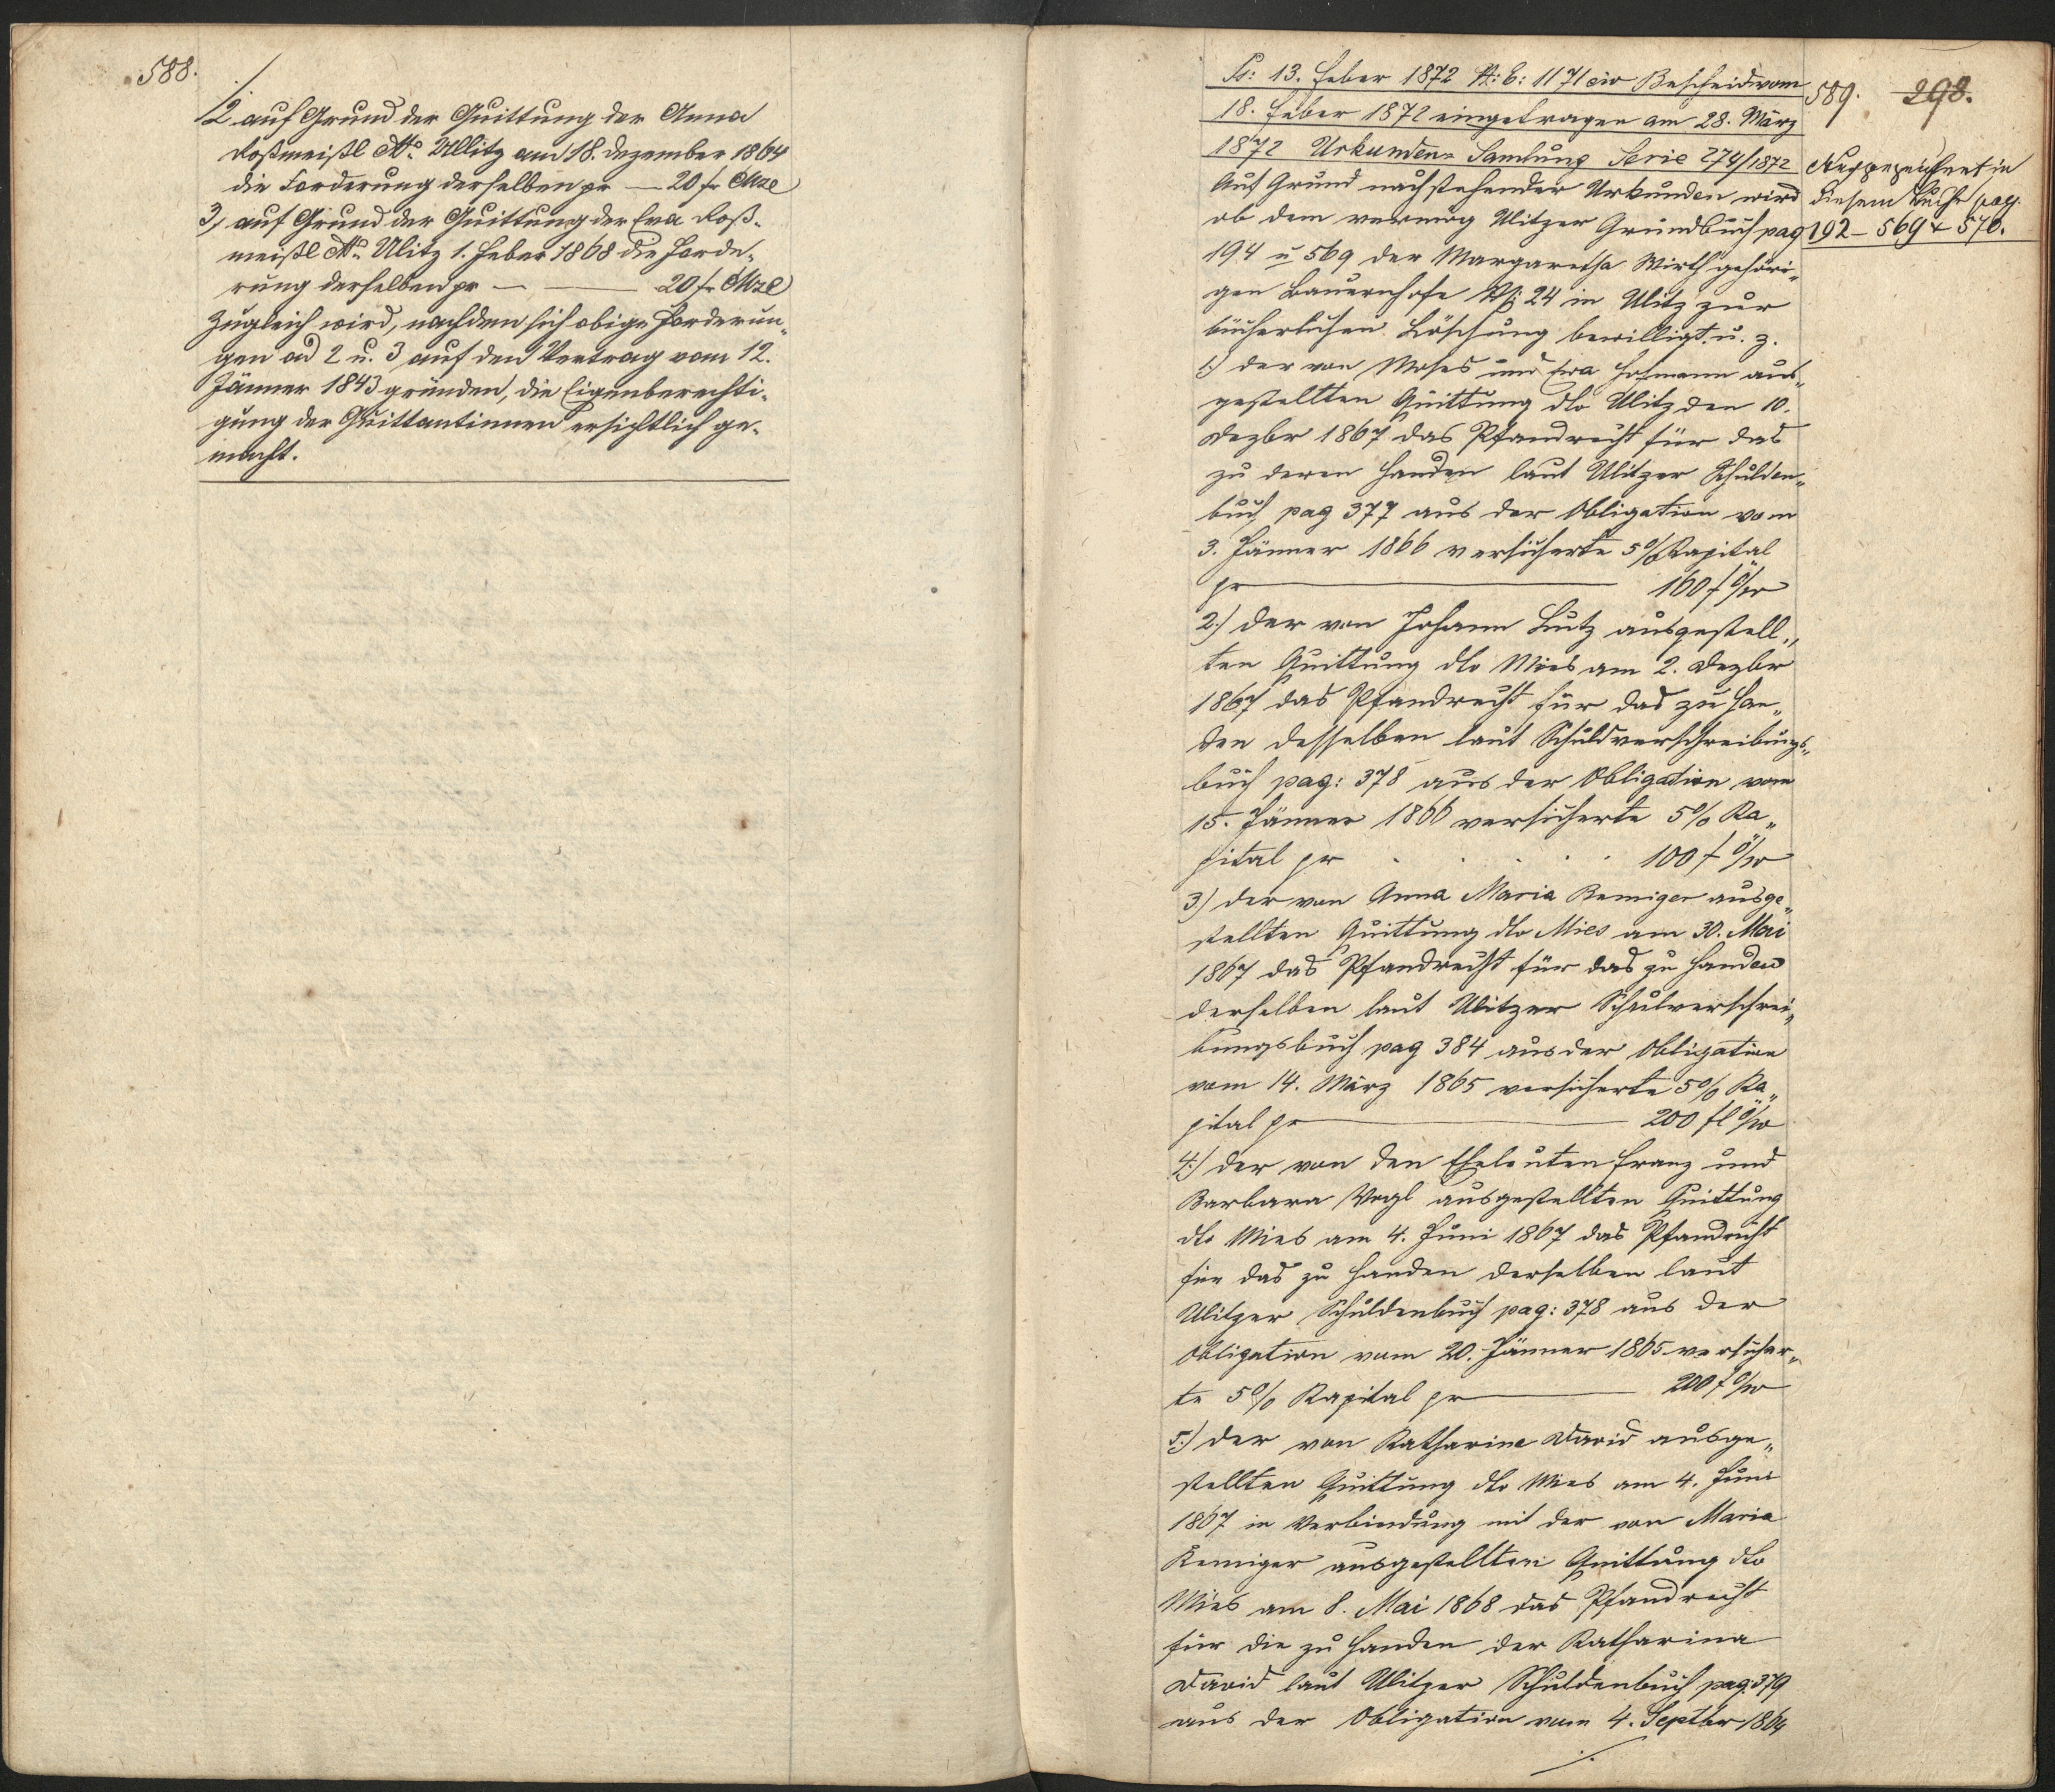 588.
./.
2 auf Grund der Quittung der Anna
Roßmeißl dto Ullitz am 18. Dezember 1864
die Forderung derselben pr — 20 fr CMze
3, auf Grund der Quittung der Eva Roß-
meißl dto Ulitz 1. Feber 1868 die Forde-
rung derselben pr — — 20 fr CMze
Zugleich wird, nachdem sich obige Forderun-
gen ad 2 u. 3 auf den Vertrag vom 12.
Jänner 1843 gründen, die Eigenberechti-
gung der Quittantinnen ersichtlich ge-
macht.
Ps: 13. Feber 1872 N: E: 1171 civ Bescheid vom
18. Feber 1872 eingetragen am 28. März
1872 Urkunden- Samlung Serie 274/1872
589. 298.
Auf Grund nachstehender Urkunden wird
ob dem vermög Ulitzer Grundbuch pag
194 u 569 der Margaretha Wirth gehöri-
gen Bauernhofe N: 24 in Ulitz zur
bücherlichen Löschung bewilligt. u. z.
diesem Buche pag.
192 – 569 & 570.
1.) der von Moses und Eva Hofmann aus-
gestellten Quittung dto Ulitz den 10.
Dezbr 1867 das Pfandrecht für das
zu deren Handen laut Ulitzer Schulden-
buch pag 377 aus der Obligation vom
3. Jänner 1866 versicherte 5% Kapital
pr — 160 f ö/w
2.) der von Johann Lutz ausgestell-
ten Quittung dto Mies am 2. Dezbr
1867 das Pfandrecht für das zu Han-
den desselben laut Schuldverschreibungs-
buch pag: 378 aus der Obligation vom
15. Jänner 1866 versicherte 5% Ka-
pital pr . . . . . 100 f ö/w
3.) der von Anna Maria Remiger ausge-
stellten Quittung dto Mies am 30. Mai
1867 das Pfandrecht für das zu Handen
derselben laut Ulitzer Schulverschrei-
bungsbuch pag 384 aus der Obligation
vom 14. März 1865 versicherte 5% Ka-
pital pr — 200 fl ö/w
4.) der von den Eheleuten Franz und
Barbara Vogl ausgestellten Quittung
dto Mies am 4. Juni 1867 das Pfandrecht
für das zu Handen derselben laut
Ulitzer Schuldenbuch pag: 378 aus der
Obligation vom 20. Jänner 1865 versicher-
te 5% Kapital pr — 200 f ö/w
5.) der von Katharine David ausge-
stellten Quittung dto Mies am 4. Juni
1867 in Verbindung mit der von Maria
Remiger ausgestellten Quittung dto
Mies am 8. Mai 1868 das Pfandrecht
für die zu Handen der Katharina
David laut Ulitzer Schuldenbuch pag: 379
aus der Obligation vom 4. Septbr 1864
./.